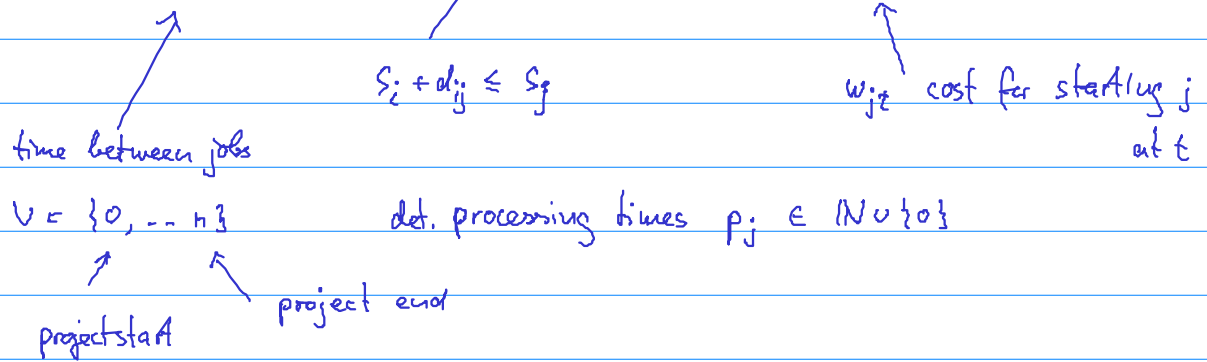 S_i + d_ij ≤ S_j
w_jt cost for starting j
time between jobs
at t
V = {0, .. n}
det. processing times p_j ∈ ℕ ∪ {0}
project end
projectstart